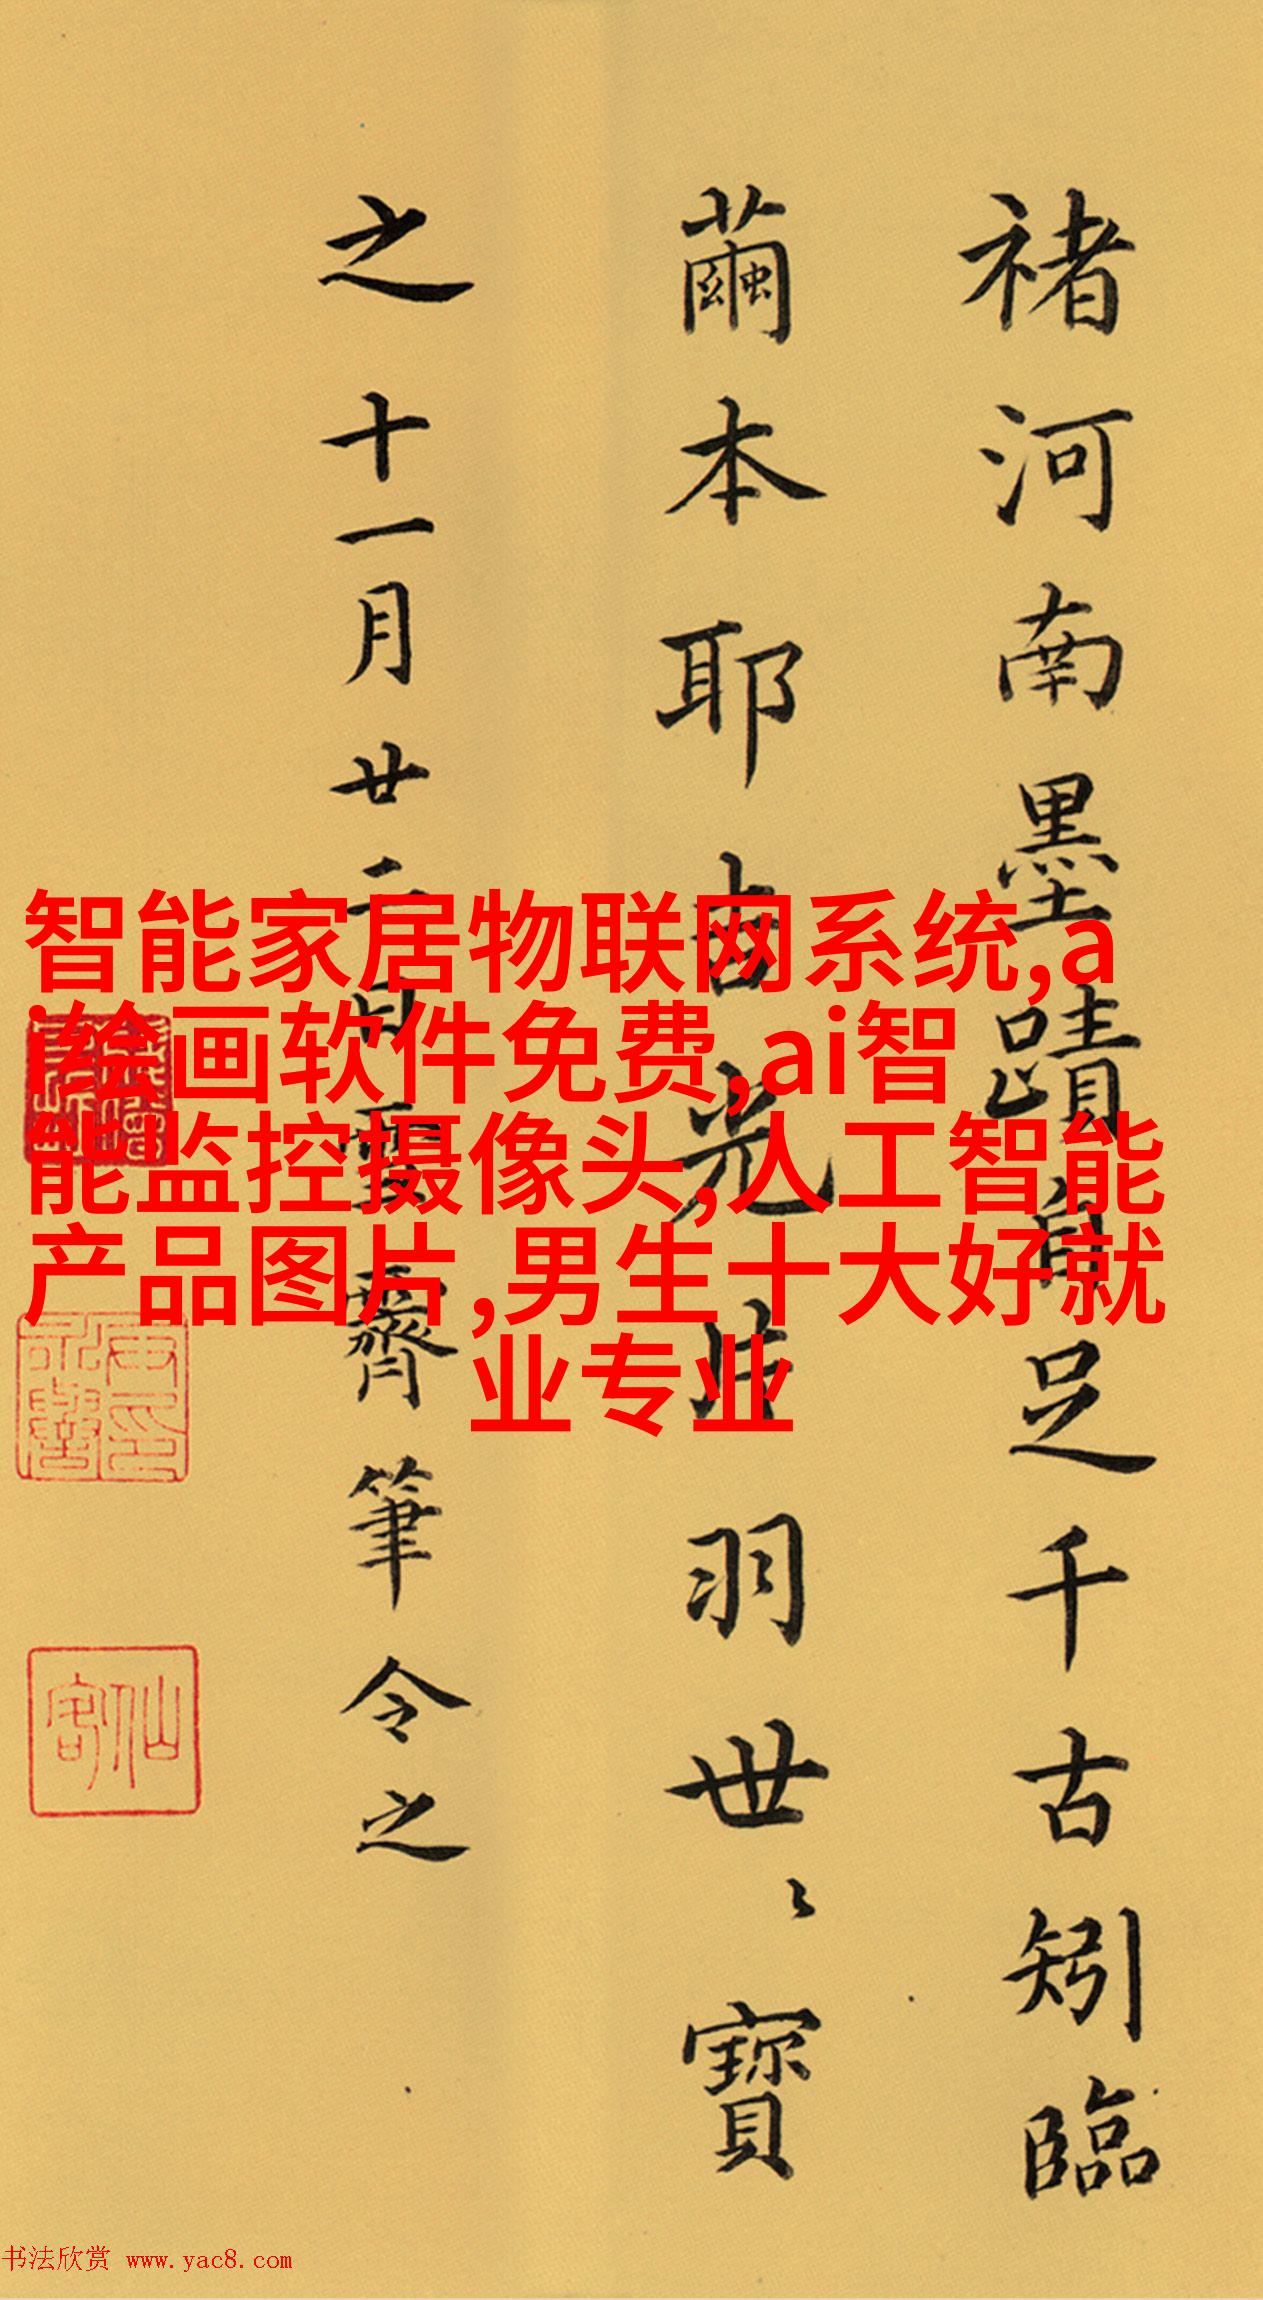 褚河南墨蹟自足千古矧臨
繭本耶吉光片羽世〻寶
之十一月廿二日雪霽筆令之
智能家居物联网系统,a
i绘画软件免费,ai智
能监控摄像头,人工智能
产品图片,男生十大好就
业专业
仙客
书法欣赏 www.yac8.com